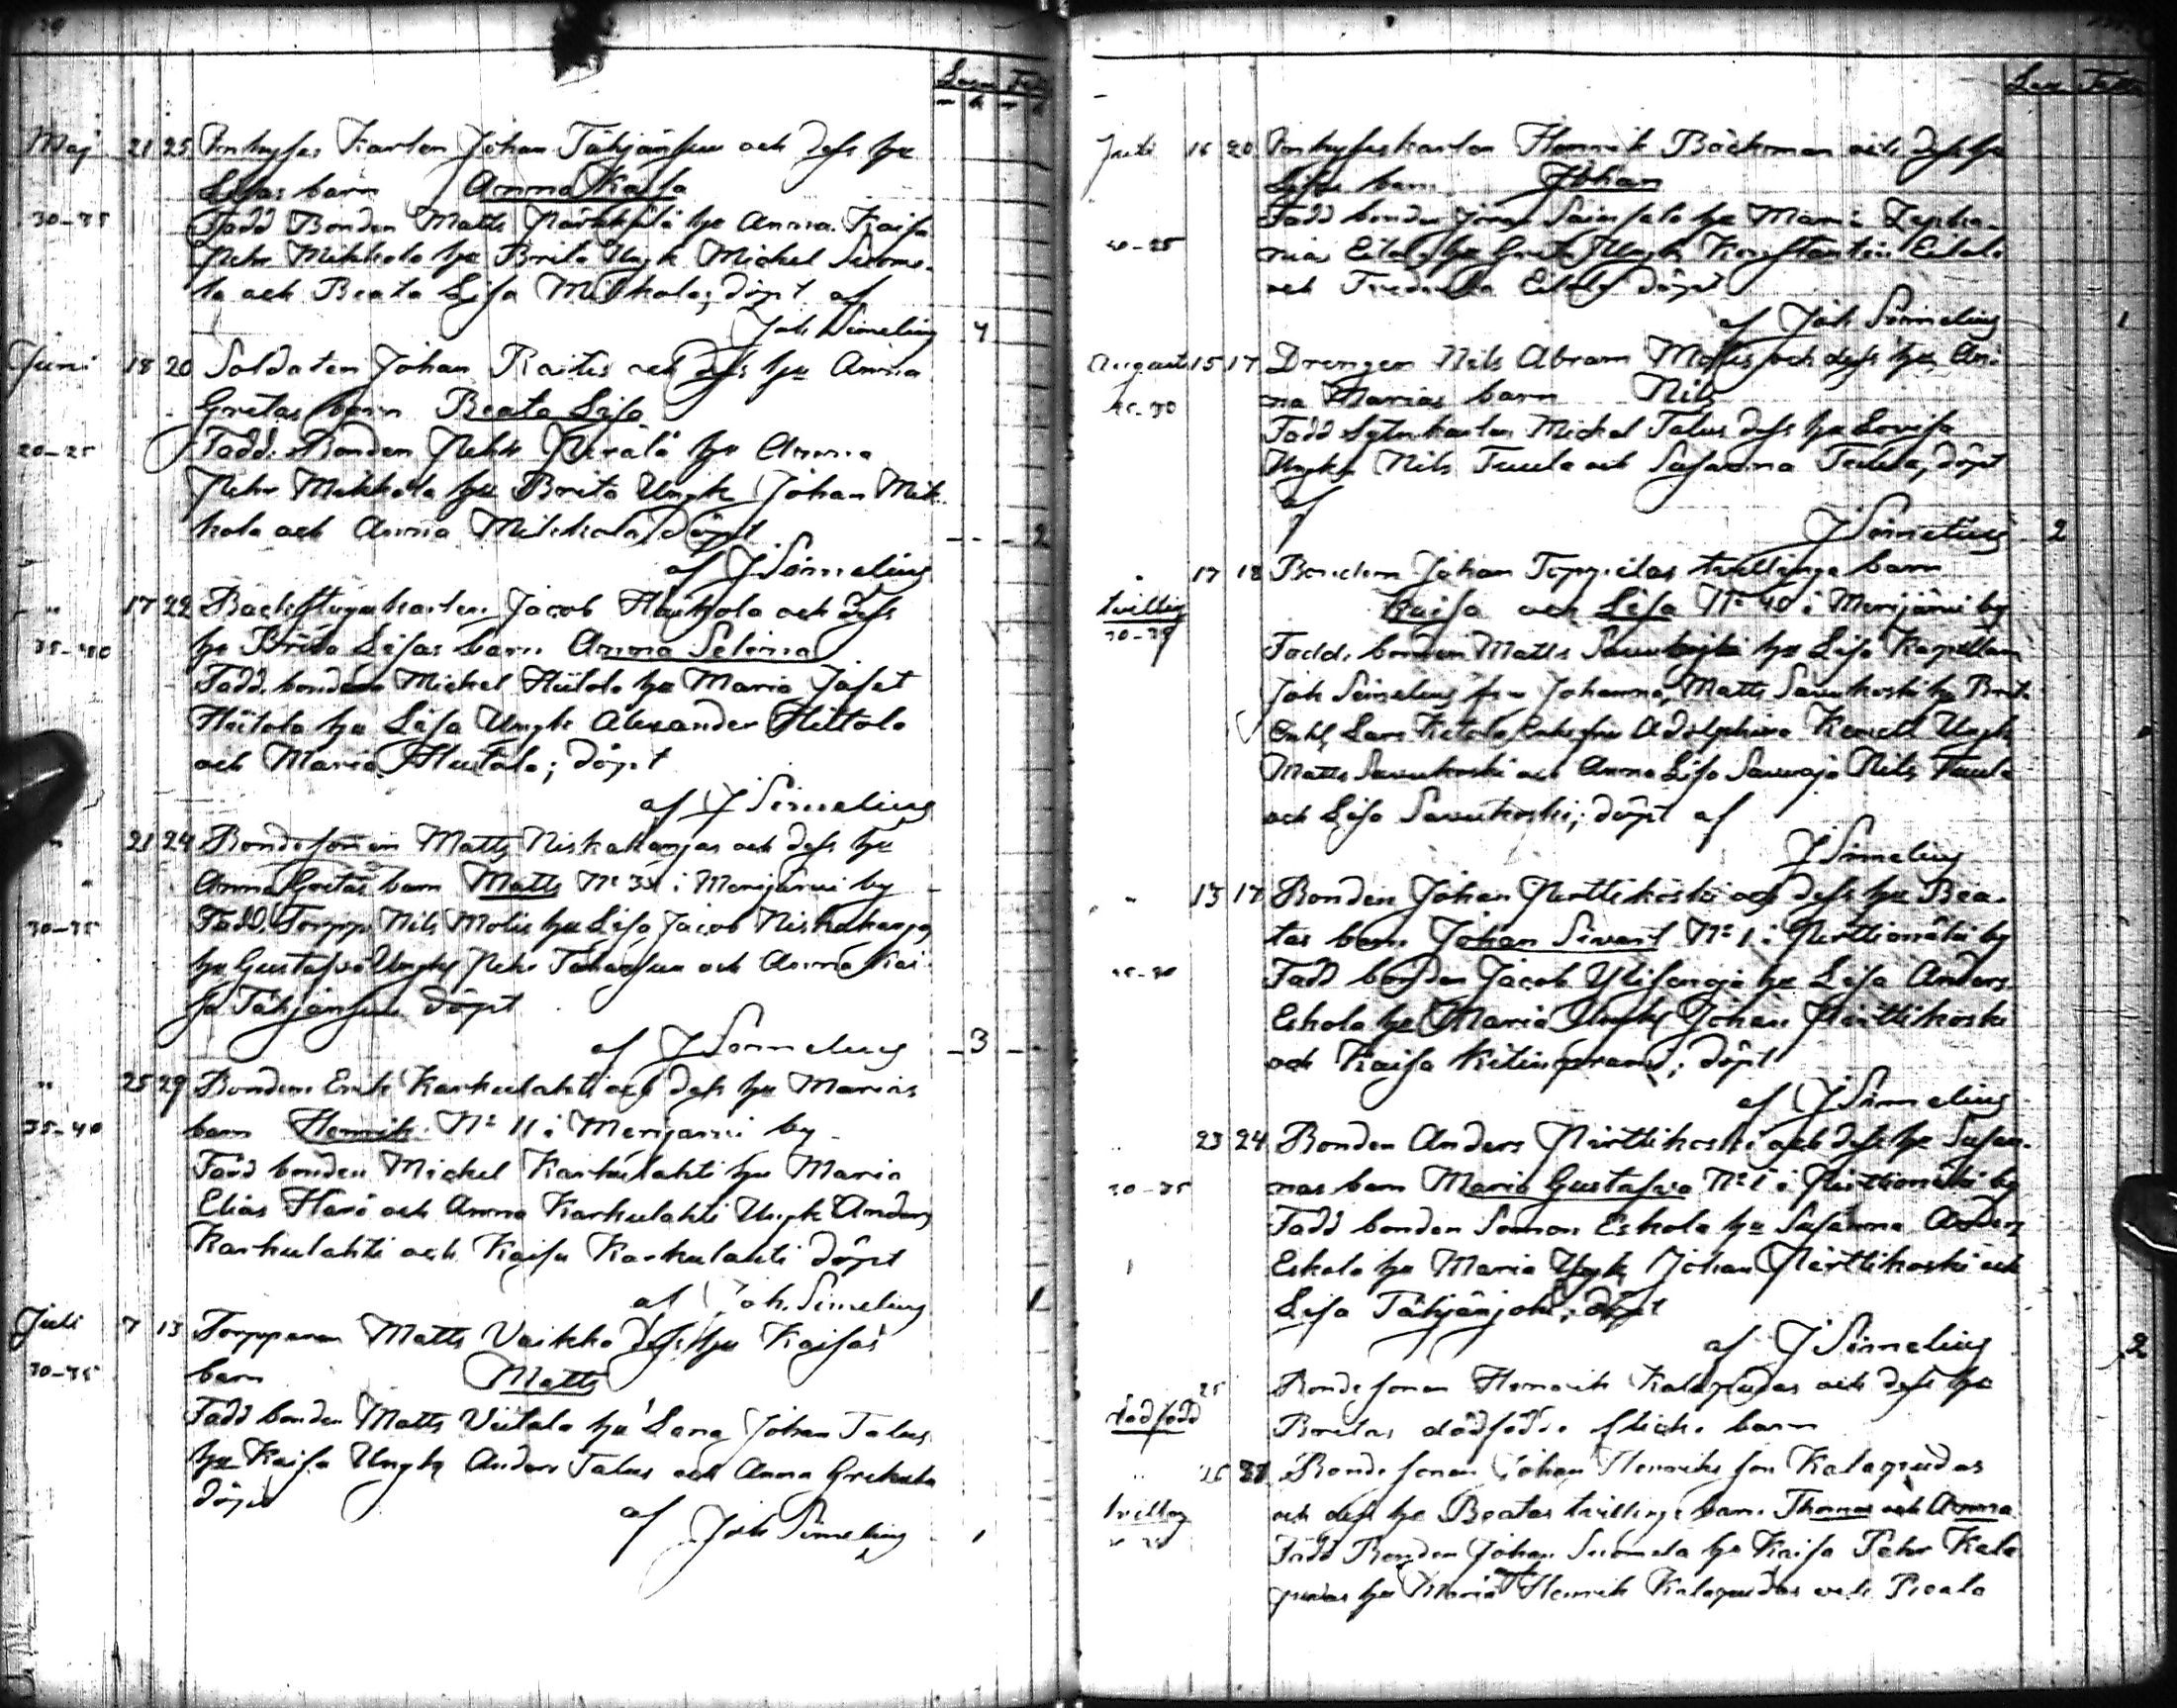 Sexus Fall
Maj 21 25 Inhyses Karlen Johan Tähjänsuu och dess hu
Lisas barn Anna Kaisa
30-35 Fadd Bonden Matts hu Anna Kaisa
Pehr Mikkola hu Brita Ungk Michel Suome-
la och Beata Lisa Mikkola; döpt af
Joh Simelius 4
Juni 18 20 Soldaten Johan Raitis och dess hu Anna
Gretas barn Beata Lisa
20-25 Fadd. Bonden Pehr Perälä hu Anna
Pehr Mikkola hu Brita Ungk Johan Mik-
kola och Anna Mikkola döpt 2
af J Simelius
" 17 22 Backstugukarlen Jacob Haukola och dess
35-40 hu Brita Lisas barn Anna Selima
Fadd. bonden Mickel Hiitola hu Maria Jafet
Hiitola hu Lisa Ungk Alexander Hiitola
och Maria Hiitola; döpt
af J Simelius
" 21 24 Bondesonen Matts Niskakangas och dess hu
Anna Gretas barn Matts No 34 i Merijärvi by
30-35 Fadd. Torpp. Nils Molis hu Lisa Jacob Niskakangas
hu Gustafva Ungk Pehr och Anna Kai-
sa Tähjänsuu döpt
af J Simelius 3
" 25 29 Bonden Erik Karhulahti och dess hu Marias
35-40 barn Henrik No 11 i Merijärvi by
Fadd bonden Mickel Karhulahti hu Maria
Elias Harö och Anna Karhulahti Ungk Anders
Karhulahti och Kaisa Karhulahti döpt
af Joh. Simelius 1
Juli 7 13 Torpparen Matts Vaikko dess hu Kaisas
30-35 barn Matts
Fadd bonden Matts Viitala hu Lena Johan Talus
hu Kaisa Ungk Anders Talus och Anna
döpt
af Joh Simelius 1
Sex Fall
Juli 16 20 Inhyseskarlen Henrik Bäckman och dess hu
Lisas barn Johan
20-25 Fadd bonden Jöran hu Maria Zepha-
nias Eitala hu Greta Ungk Konstantin Eitala
och Fredrika Eitala döpt
af Joh Simelius 1
Augusti 15 17 Drengen Nils Abram Molis och dess hu An-
na Marias barn Nils
25-30 Fadd Mickel Talus dess hu Lovisa
Ungk Nils Tuula och Susanna Tuula; döpt
af
J Simelius 2
" 17 18 Bonden Johan Toppilas tvillinge barn
tvilling Kaisa och Lisa No 40 i Merijärvi by
30-35 Fadd. bonden Matts Saukoski hu Lisa Kapellan
Joh Simelius fru Johanna, Matts Savukoski hu Brita
Lars Ketola Adolphina Ungk
Matts Savukoski och Anna Lisa Nils Tuula
och Lisa Savukoski; döpt af
J Simelius
" 13 17 Bonden Johan Pirttikoski och dess hu Bea-
tas barn Johan Sivert No 1 i Pirttimäki by
25-30 Fadd bonden Jacob Ylisaoja hu Lisa Anders
Eskola hu Maria Ungk Johan Pirttikoski
och Kaisa Kitinprami; döpt
af J Simelius
" 23 24 Bonden Anders Pirttikoski och dess hu Susan-
30-35 nas barn Maria Gustafva No 1 i Pirttimäki by
Fadd bonden Simon Eskola hu Susanna Anders
Eskola hu Maria Ungk Johan Pirttikoski och
Lisa Tähjänjoki; döpt
af J Simelius 2
25 Bondesonen Henrik Kalapudas och dess hu
dödfödd Britas dödfödde flicke barn
" 26 28 Bondesonen Johan Henriksson Kalapudas
tvilling och dess hu Beatas tvillinge barn Thomas och Anna
Fadd Bonden Johan Suomela hu Kaisa Pehr Kala-
pudas hu Maria Henrik Kalapudas och Beata